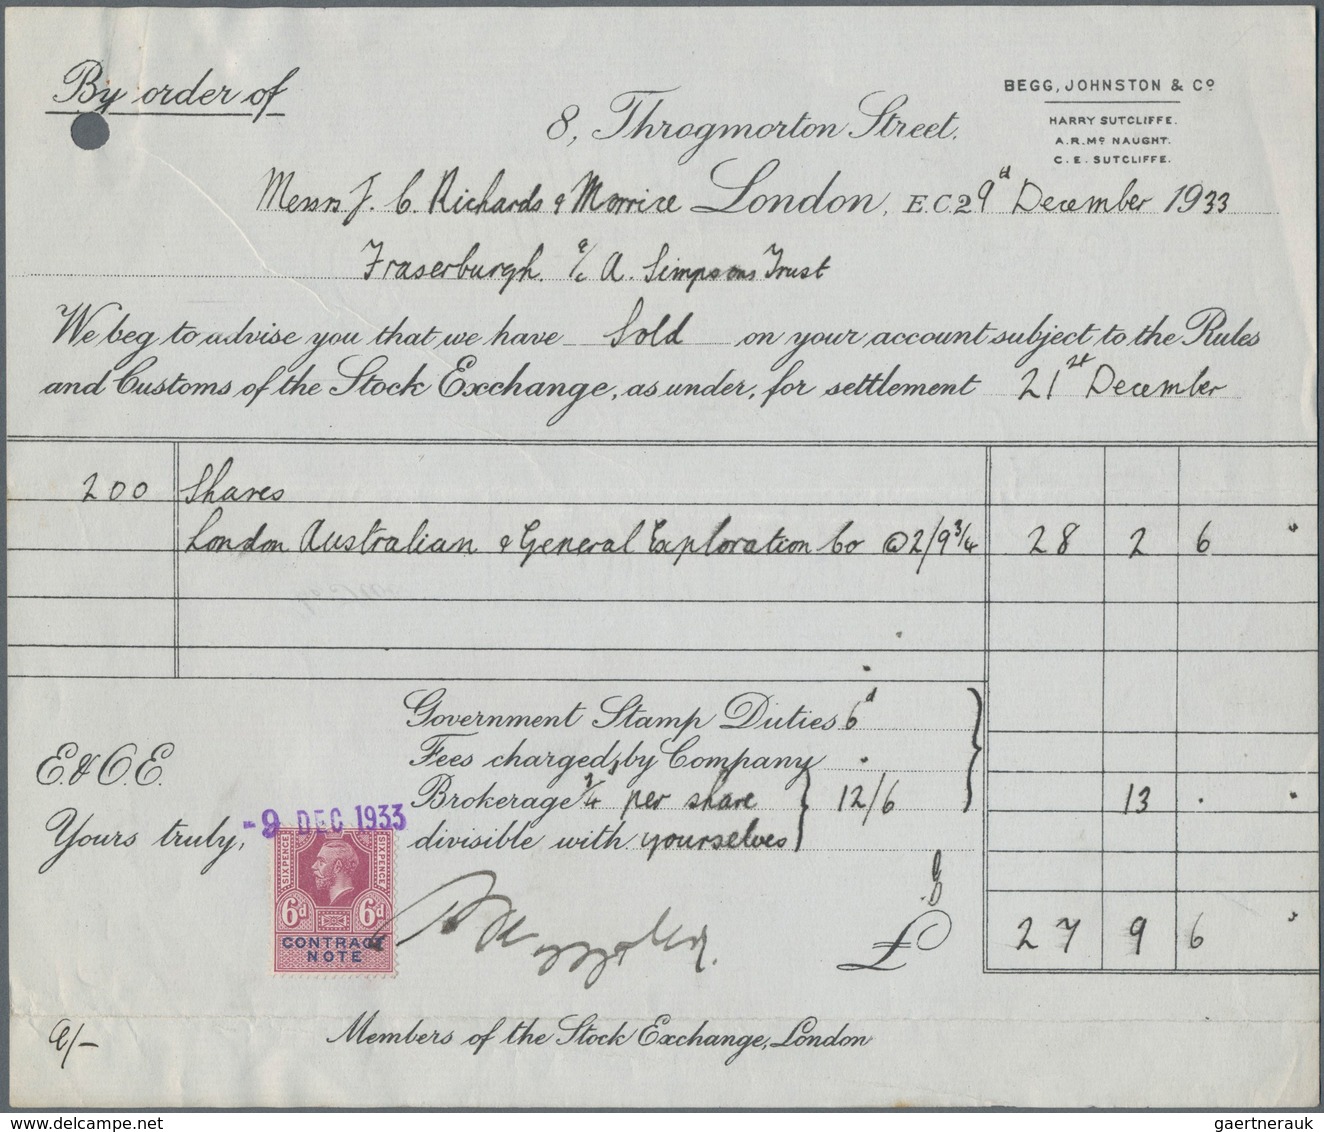 By order of
BEGG, JOHNSTON & Co
HARRY SUTCLIFFE.
A.R.Mc NAUGHT.
C. E. SUTCLIFFE.
8, Throgmorton Street,
Messrs J. C. Richards & Morrice London, E.C.2 9d December 1933
Fraserburgh. a/c A. Simpsons Trust
We beg to advise you that we have Sold on your account subject to the Rules
and Customs of the Stock Exchange, as under, for settlement 21st December
200 Shares
London Australian & General Exploration Co @ 2/9 3/4 28 2 6 "
Government Stamp Duties 6d
Fees charged by Company .
E. & O.E.
Brokerage 3/4 per share } 12/6 13 . "
divisible with yourselves
Yours truly,
-9 DEC 1933
SIXPENCE SIXPENCE
6d 6d
CONTRACT
NOTE
£ 27 9 6 "
Members of the Stock Exchange, London
gaertnerauk